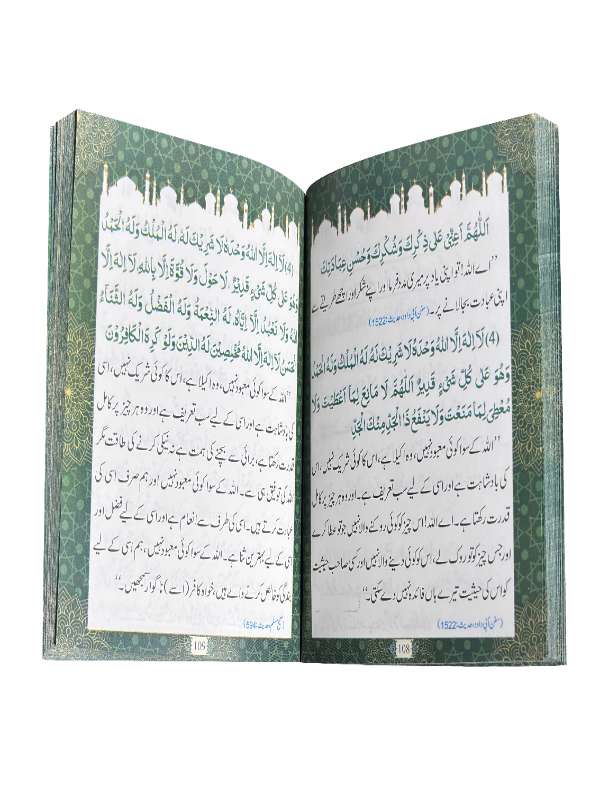 اَللّٰهُمَّ اَعِنِّىْ عَلٰى ذِكْرِكَ وَشُكْرِكَ وَحُسْنِ عِبَادَتِكَ
”اے اللہ! تو اپنی یاد پر میری مدد فرما اور اپنے شکر اور اچھے طریقے سے
اپنی عبادت بجا لانے پر۔ (سنن أبي داود، حدیث: 1522)
(4) لَا اِلٰهَ اِلَّا اللّٰهُ وَحْدَهٗ لَا شَرِيْكَ لَهٗ لَهُ الْمُلْكُ وَلَهُ الْحَمْدُ
وَهُوَ عَلٰى كُلِّ شَىْءٍ قَدِيْرٌ اَللّٰهُمَّ لَا مَانِعَ لِمَا اَعْطَيْتَ وَلَا
مُعْطِىَ لِمَا مَنَعْتَ وَلَا يَنْفَعُ ذَا الْجَدِّ مِنْكَ الْجَدُّ
”اللہ کے سوا کوئی معبود نہیں، وہ اکیلا ہے، اس کا کوئی شریک نہیں، اس
کی بادشاہت ہے اور اسی کے لیے سب تعریف ہے۔ اور وہ ہر چیز پر کامل
قدرت رکھتا ہے۔ اے اللہ! اس چیز کو کوئی روکنے والا نہیں جو تو عطا کرے
اور جس چیز کو تو روک لے، اس کو کوئی دینے والا نہیں اور کسی صاحب حیثیت
کو اس کی حیثیت تیرے ہاں فائدہ نہیں دے سکتی۔“
(سنن أبي داود، حدیث: 1522)
108
(4) لَا اِلٰهَ اِلَّا اللّٰهُ وَحْدَهٗ لَا شَرِيْكَ لَهٗ لَهُ الْمُلْكُ وَلَهُ الْحَمْدُ
وَهُوَ عَلٰى كُلِّ شَىْءٍ قَدِيْرٌ لَا حَوْلَ وَلَا قُوَّةَ اِلَّا بِاللّٰهِ لَا اِلٰهَ اِلَّا
اللّٰهُ وَلَا نَعْبُدُ اِلَّا اِيَّاهُ لَهُ النِّعْمَةُ وَلَهُ الْفَضْلُ وَلَهُ الثَّنَاءُ
الْحَسَنُ لَا اِلٰهَ اِلَّا اللّٰهُ مُخْلِصِيْنَ لَهُ الدِّيْنَ وَلَوْ كَرِهَ الْكَافِرُوْنَ
”اللہ کے سوا کوئی معبود نہیں، وہ اکیلا ہے، اس کا کوئی شریک نہیں، اسی
کی بادشاہت ہے اور اسی کے لیے سب تعریف ہے اور وہ ہر چیز پر کامل
قدرت رکھتا ہے، برائی سے بچنے کی ہمت ہے نہ نیکی کرنے کی طاقت مگر
اللہ کی توفیق ہی سے۔ اللہ کے سوا کوئی معبود نہیں اور ہم صرف اسی کی
عبادت کرتے ہیں۔ اسی کی طرف سے انعام ہے اور اسی کے لیے فضل اور
اسی کے لیے بہترین ثنا ہے۔ اللہ کے سوا کوئی معبود نہیں، ہم اسی کے لیے
بندگی کو خالص کرنے والے ہیں، خواہ کافر (اسے) ناگوار سمجھیں۔“
(صحیح مسلم، حدیث: 594)
109